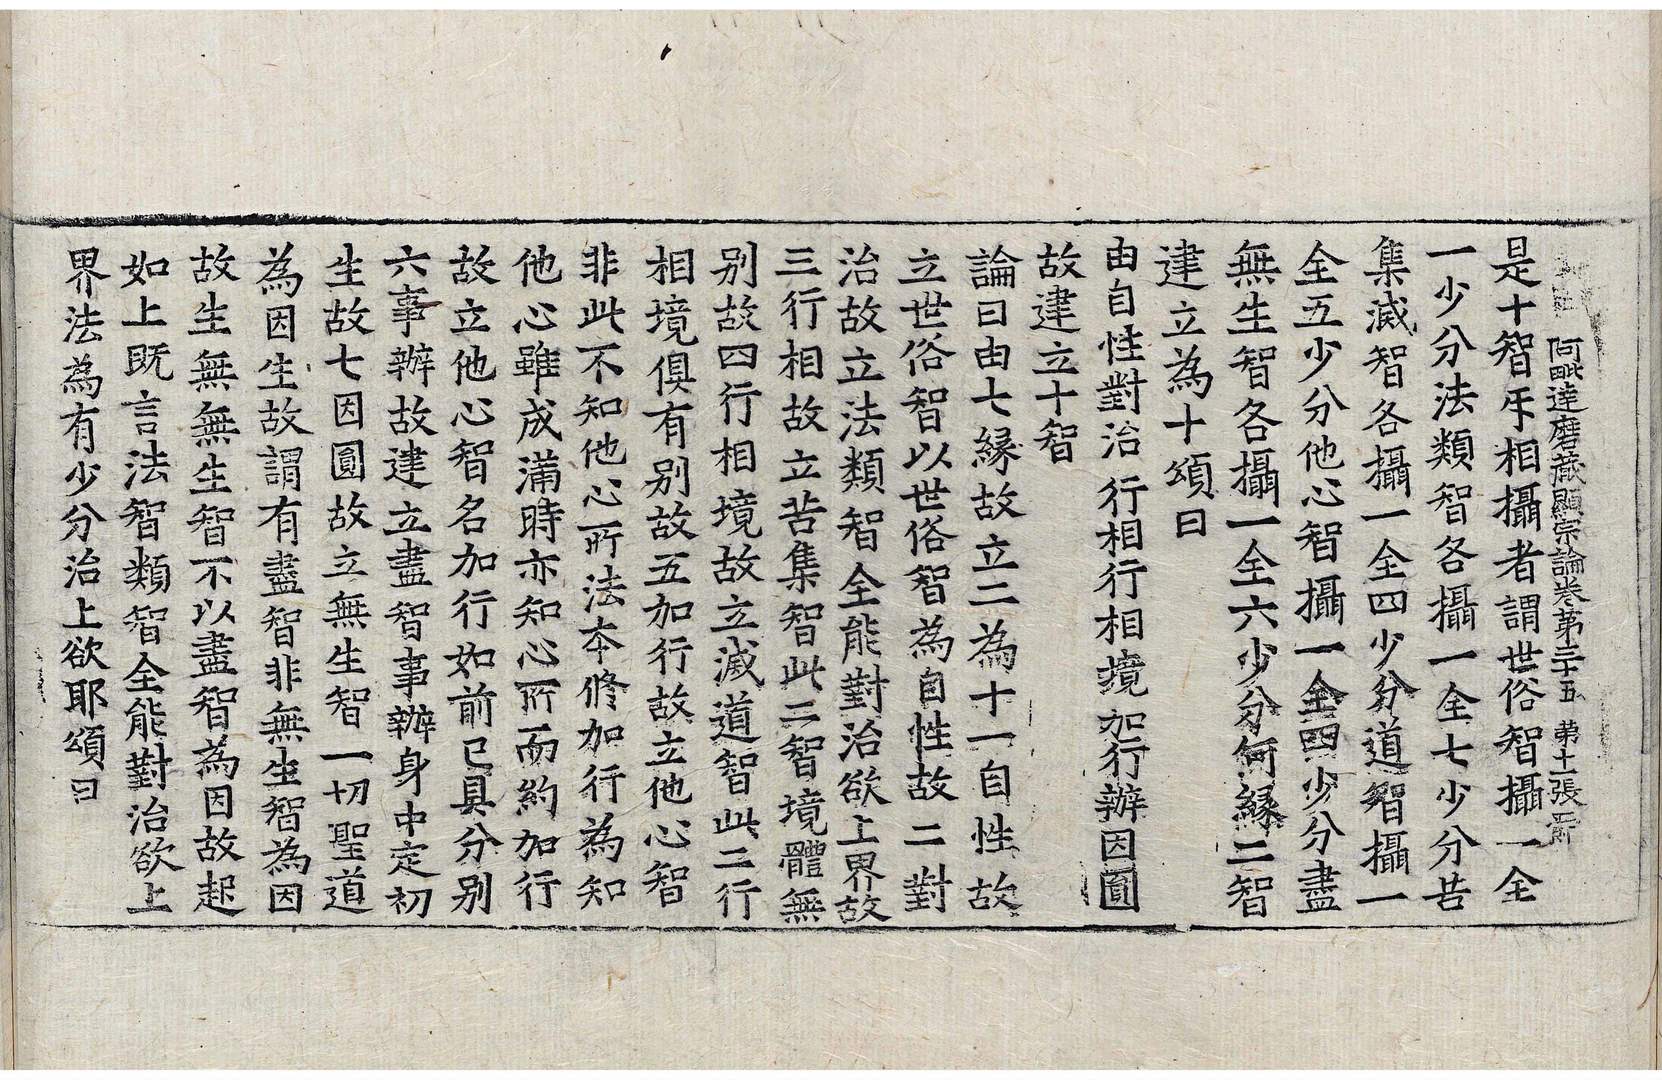 阿毗達磨藏顯宗論卷第三十五 第十一張
是十智互相攝者謂世俗智攝一全
一少分法類智各攝一全七少分苦
集滅智各攝一全四少分道智攝一
全五少分他心智攝一全四少分盡
無生智各攝一全六少分何緣二智
建立為十頌曰
由自性對治 行相行相境 加行辦因圓
故建立十智
論曰由七緣故立二為十一自性故
立世俗智以世俗智為自性故二對
治故立法類智全能對治欲上界故
三行相故立苦集智此二智境體無
別故四行相境故立滅道智此二行
相境俱有別故五加行故立他心智
非此不知他心所法本修加行為知
他心雖成滿時亦知心所而約加行
故立他心智名加行如前已具分別
六事辦故建立盡智事辦身中定初
生故七因圓故立無生智一切聖道
為因生故謂有盡智非無生智為因
故生無無生智不以盡智為因故起
如上既言法智類智全能對治欲上
界法為有少分治上欲耶頌曰